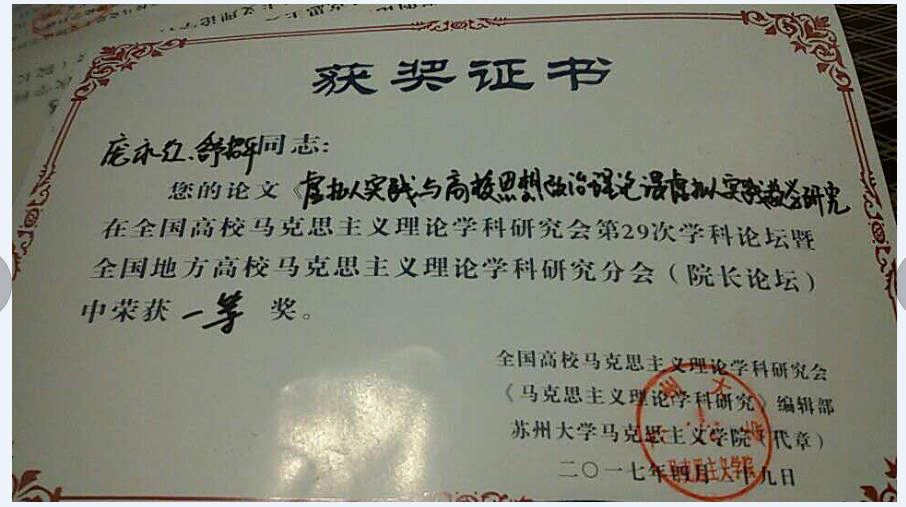 获奖证书
庞永红、舒招平同志：
您的论文《虚拟实践与高校思想政治理论课虚拟实践教学研究
在全国高校马克思主义理论学科研究会第29次学科论坛暨
全国地方高校马克思主义理论学科研究分会（院长论坛）
中荣获一等奖。
全国高校马克思主义理论学科研究会
《马克思主义理论学科研究》编辑部
苏州大学马克思主义学院（代章）
二〇一七年四月二十九日
马克思主义学院